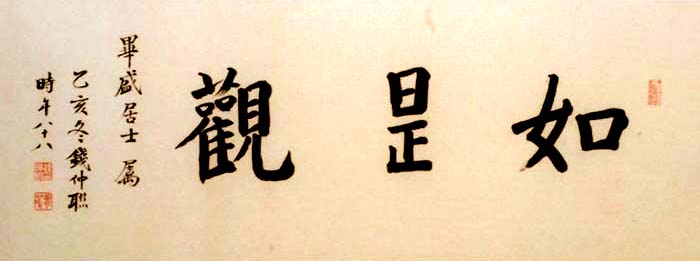 如是觀
畢盛居士 属
乙亥冬錢仲聯
時年八十八